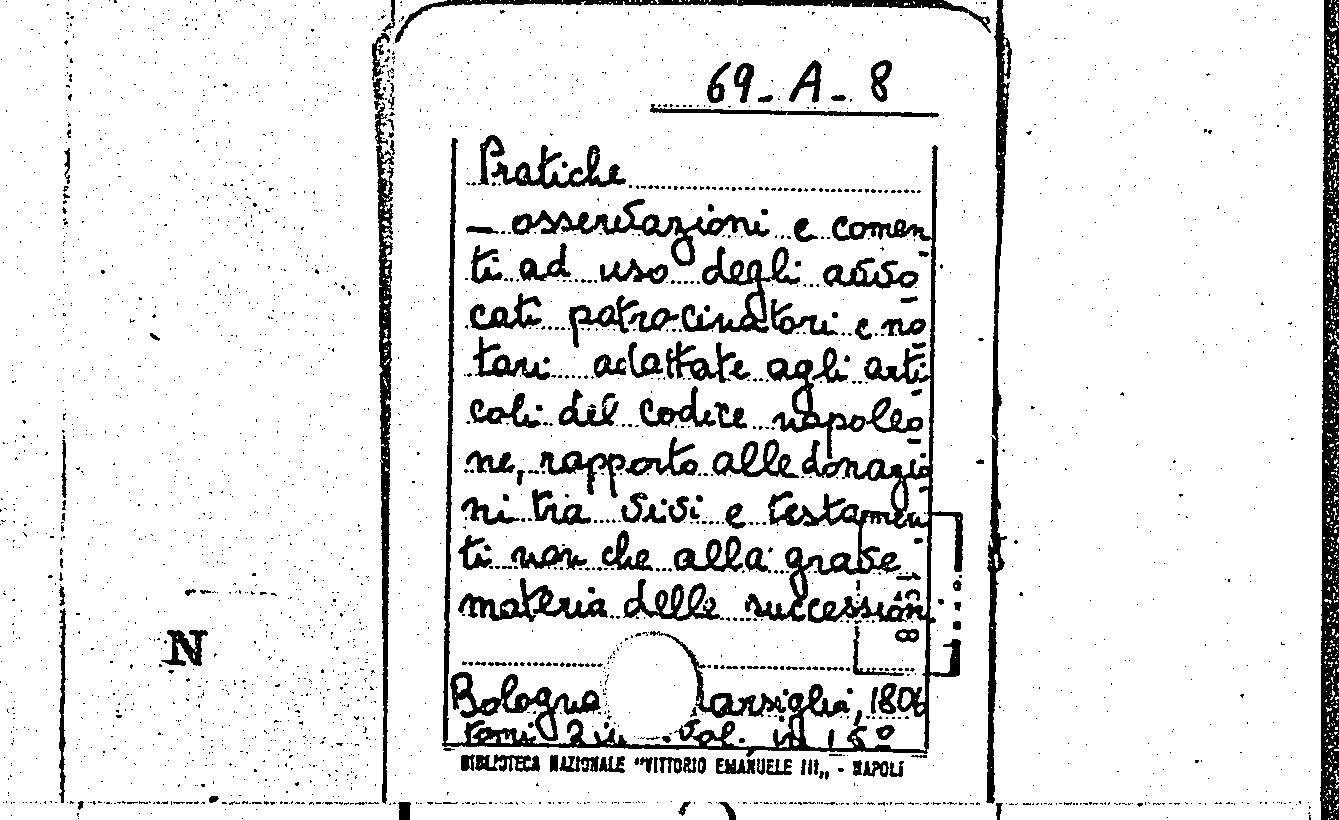 69-A-8
Pratiche
— osservazioni e comen
ti ad uso degli avvo
cati patrocinatori e no
tari adattate agli arti
coli del codice napoleo
ne, rapporto alle donazio
ni tra vivi e testamen
ti non che alla grave
materia delle succession.
N
Bologna arsiglia, 180
tomi 2 in vol. in
BIBLIOTECA NAZIONALE "VITTORIO EMANUELE III„ - NAPOLI